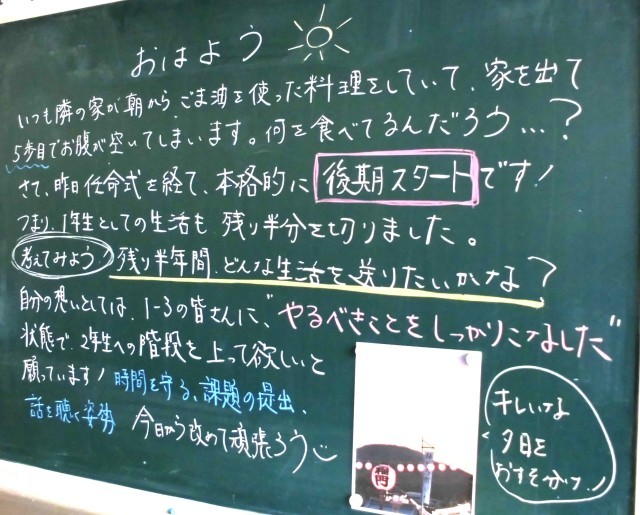 おはよう
いつも隣の家が朝からごま油を使った料理をしていて、家を出て
5歩目でお腹が空いてしまいます。何を食べてるんだろう…?
さて、昨日任命式を経て、本格的に後期スタートです!
つまり、1年生としての生活も残り半分を切りました。
考えてみよう! 残り半年間、どんな生活を送りたいかな?
自分の想いとしては、1-3の皆さんに、"やるべきことをしっかりこなした"
状態で、2年生への階段を上って欲しいと
願っています! 時間を守る、課題の提出、
話を聴く姿勢 今日から改めて頑張ろう
キレイな
夕日を
おすそわけ!